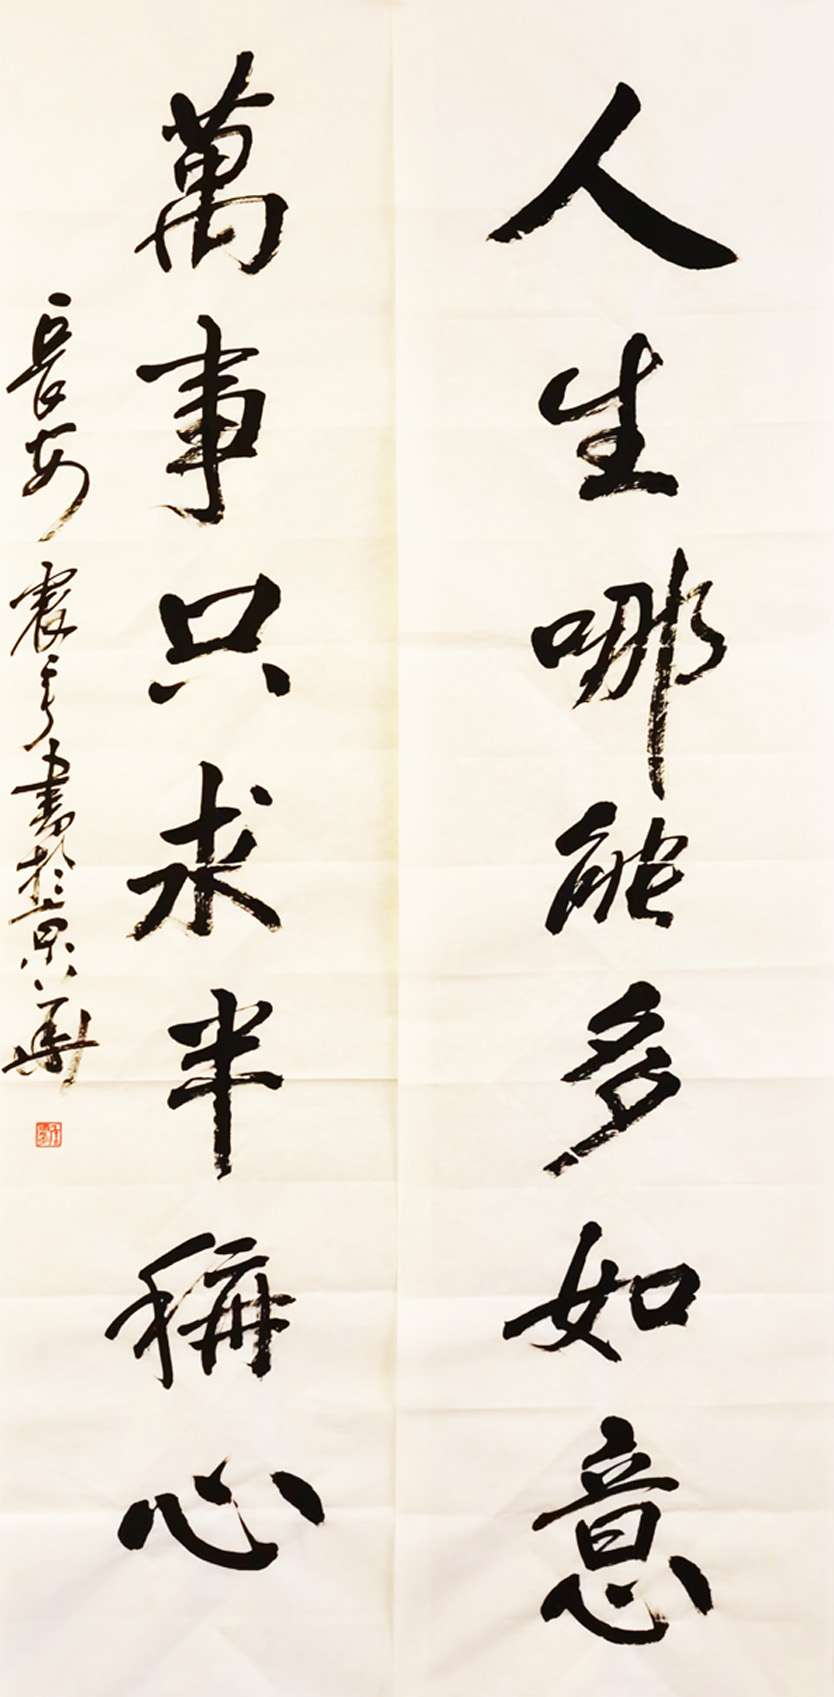 人生哪能多如意
萬事只求半稱心
長安震亭書於京華